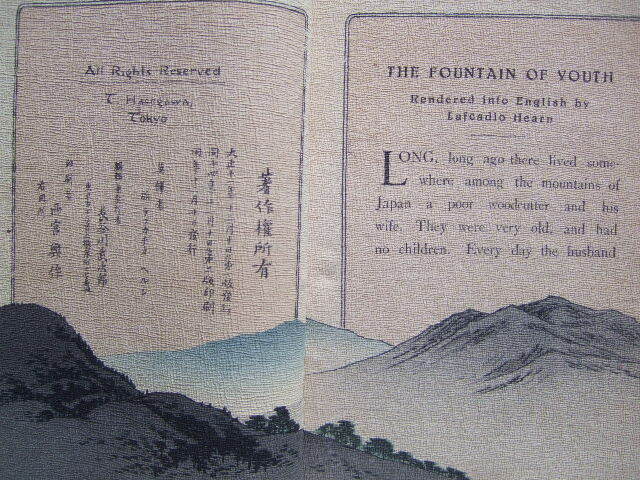 All Rights Reserved
T. Hasegawa,
Tokyo
著作權所有
大正十一年十二月十日第一版發行
英譯者
ラフカヂオ ヘルン
長谷川武次郎
印刷者
西宮與作
THE FOUNTAIN OF YOUTH
Rendered into English by
Lafcadio Hearn
LONG, long ago there lived some-
where among the mountains of
Japan a poor woodcutter and his
wife. They were very old, and had
no children. Every day the husband